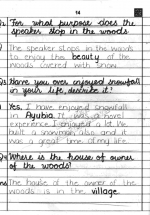 14
Q For what purpose does the
speaker stop in the woods
The speaker stops in the woods
to enjoy the beauty of the
woods covered with snow.
Q Have you ever enjoyed snowfall
in your life, describe it?
Yes, I have enjoyed snowfall
in Ayubia. It was a novel
experience. I enjoyed a lot. We
built a snowman also and it
was a great time of my life.
Q Where is the house of owner
of the woods?
Ans The house of the owner of the
woods is in the village.